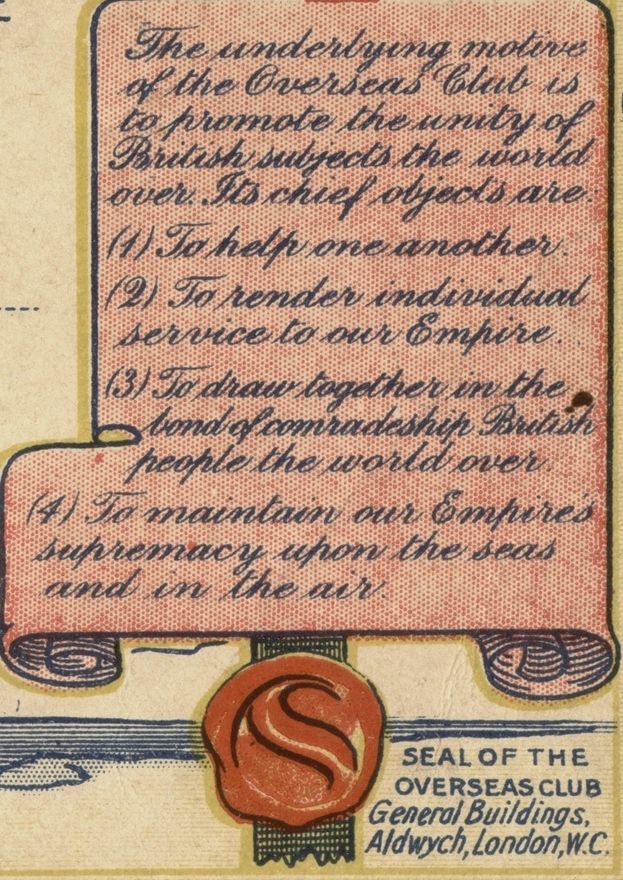 The underlying motive
of the Overseas Club is
to promote the unity of
British subjects the world
over. Its chief objects are:
(1) To help one another.
(2) To render individual
service to our Empire.
(3) To draw together in the
bond of comradeship British
people the world over.
(4) To maintain our Empire's
supremacy upon the seas
and in the air.
SEAL OF THE
OVERSEAS CLUB
General Buildings,
Aldwych, London, W.C.